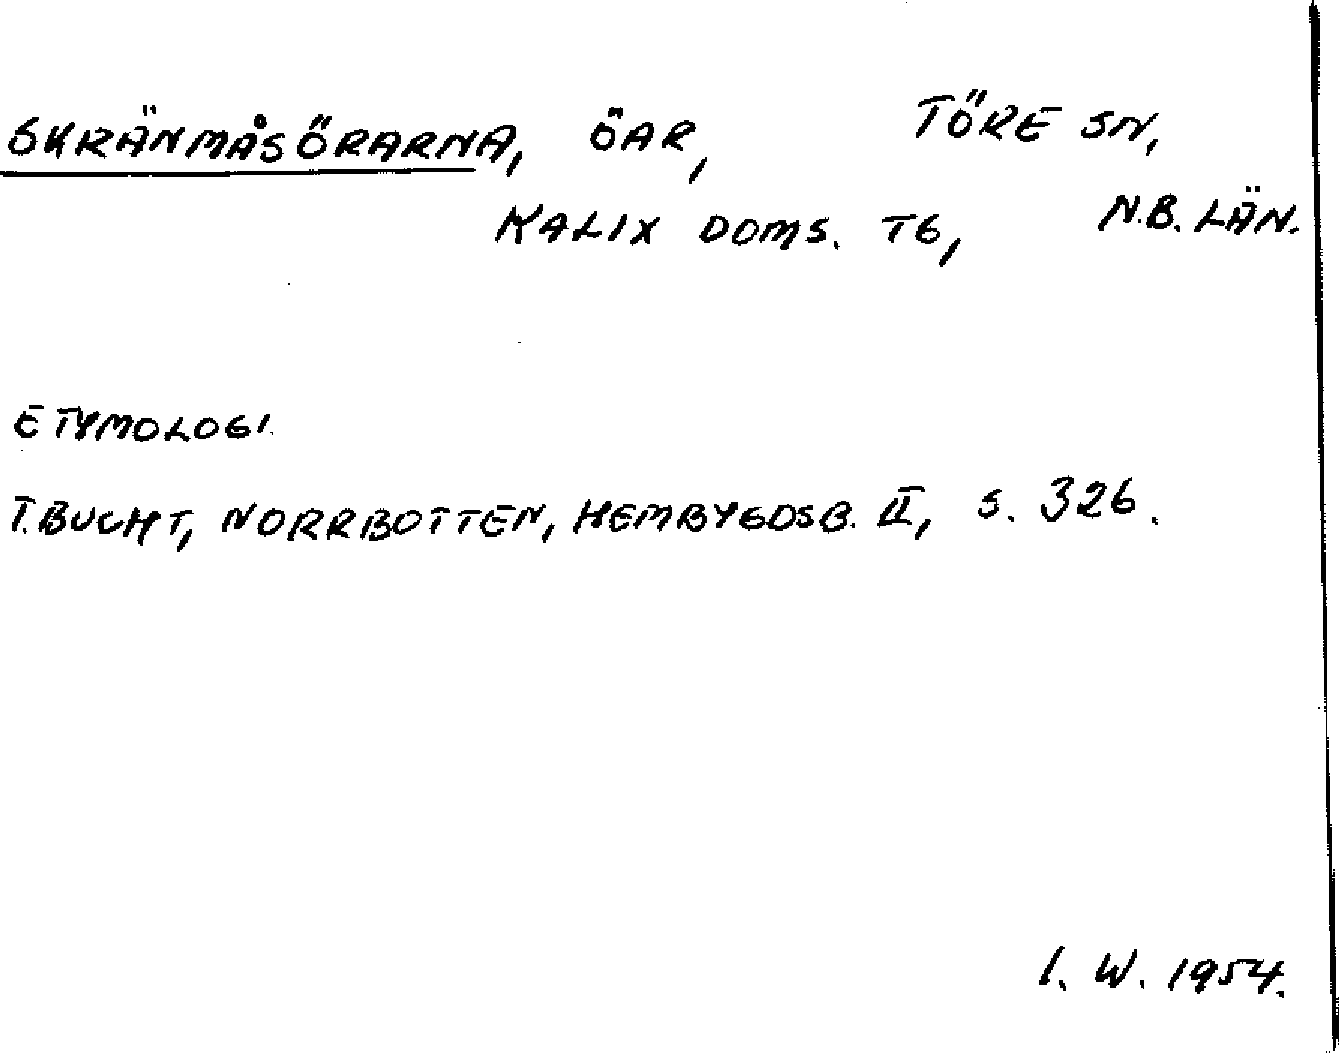 SKRÄNMÅSÖRARNA, ÖAR, TÖRE SN,
KALIX DOMS. TG, N.B. LÄN.
ETYMOLOGI.
T. BUCHT, NORRBOTTEN, HEMBYGDSB. II, S. 326.
I. W. 1954.